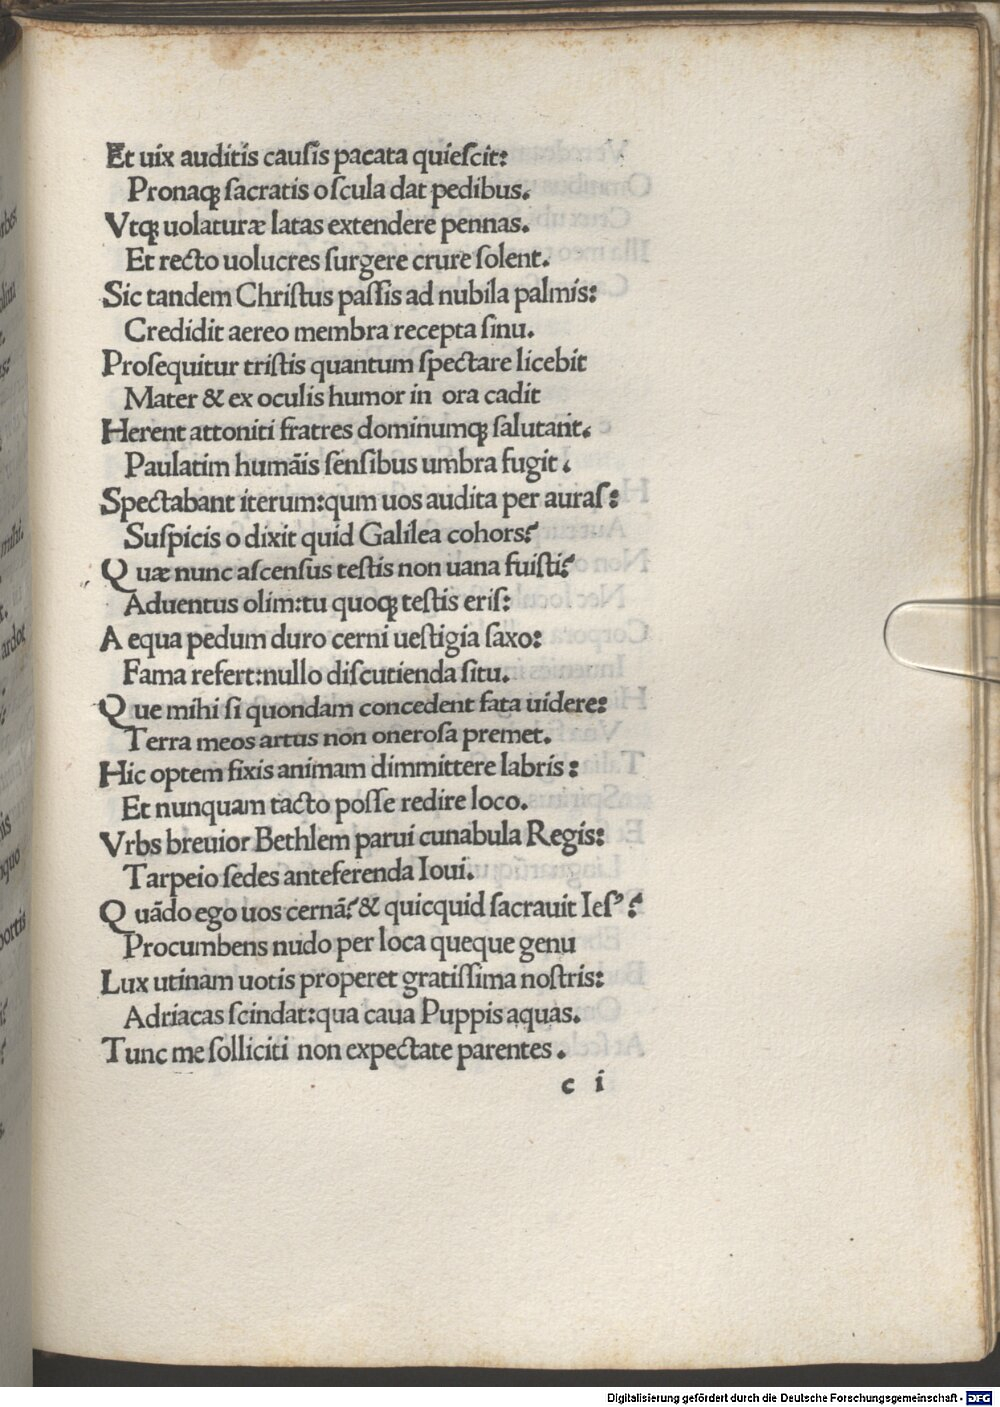 Et uix auditis cauſis pacata quieſcit:
Pronaqꝫ ſacratis oſcula dat pedibus.
Vtqꝫ uolaturæ latas extendere pennas.
Et recto uolucres ſurgere crure ſolent.
Sic tandem Chriſtus paſſis ad nubila palmis:
Credidit aereo membra recepta ſinu.
Proſequitur triſtis quantum ſpectare licebit
Mater & ex oculis humor in ora cadit
Herent attoniti fratres dominumqꝫ ſalutant.
Paulatim humāis ſenſibus umbra fugit.
Spectabant iterum:qum uos audita per auraſ:
Suſpicis o dixit quid Galilea cohors?
Quæ nunc aſcenſus teſtis non uana fuiſti?
Aduentus olim:tu quoqꝫ teſtis eriſ:
A equa pedum duro cerni ueſtigia ſaxo:
Fama refert:nullo diſcutienda ſitu.
Que mihi ſi quondam concedent fata uidere:
Terra meos artus non oneroſa premet.
Hic optem fixis animam dimmittere labris:
Et nunquam tacto poſſe redire loco.
Vrbs breuior Bethlem parui cunabula Regis:
Tarpeio ſedes anteferenda Ioui.
Quādo ego uos cernā?& quicquid ſacrauit Ieſꝰ?
Procumbens nudo per loca queque genu
Lux utinam uotis properet gratiſſima noſtris:
Adriacas ſcindat:qua caua Puppis aquas.
Tunc me ſolliciti non expectate parentes.
c i
Digitalisierung gefördert durch die Deutsche Forschungsgemeinschaft - DFG